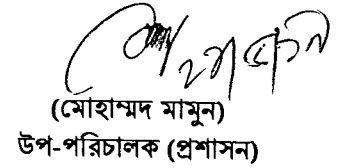 (মোহাম্মদ মামুন)
উপ-পরিচালক (প্রশাসন)